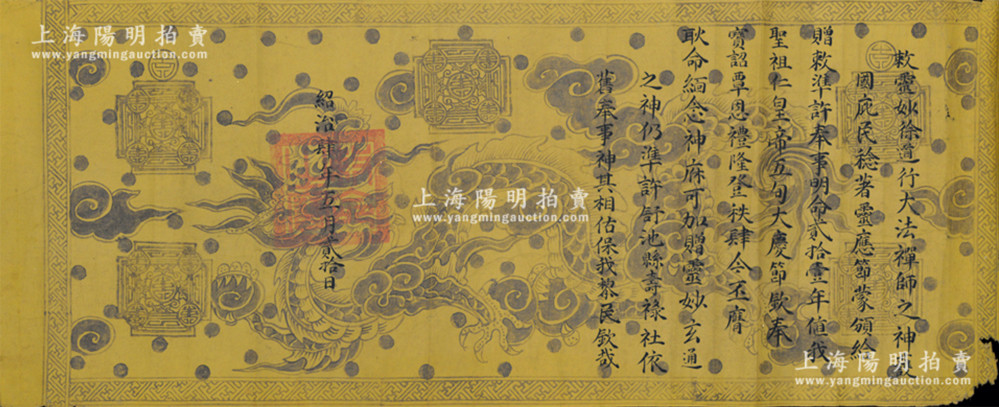 敕靈妙徐道行大法禪師之神
國庇民稔著靈應節蒙頒給
贈敕準許奉事明命貳拾壹年值我
聖祖仁皇帝五旬大慶節欽奉
寶詔覃恩禮隆登秩肆今丕膺
耿命緬念神庥可加贈靈妙玄通
之神仍準許訂池縣壽祿社依
舊奉事神其相佑保我黎民欽哉
紹治肆年五月貳拾日
上海陽明拍賣
www.yangmingauction.com
上海陽明拍賣
www.yangmingauction.com
上海陽明拍賣
www.yangmingauction.com
上海陽明拍賣
www.yangmingauction.com
上海陽明拍賣
www.yangmingauction.com